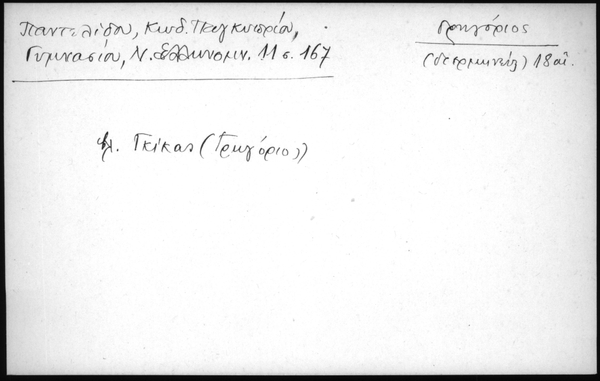 Παντελίδου, Κωδ. Παγκυπρίου,
Γυμνασίου, Ν. Ελληνομν. 11 σ. 167
Γρηγόριος
18 αἰ.
βλ. Γκίκας (Γρηγόριος)